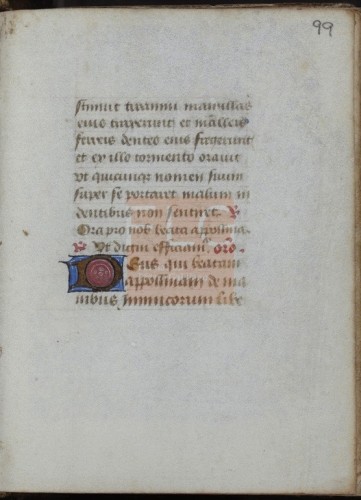 99
simut tirannu maxillas
eius turperunt et malleis
ferreis dentes eius fregerunt
et ex illo tormento orauit
vt quicunque nomen suum
super se portaret malum in
dentibus non sentiret. V
Ora pro nob beata appollinia.
R Vt digni efficiam. oro.
Deus qui beatam
appolliniam de ma
nibus inimicorum libe